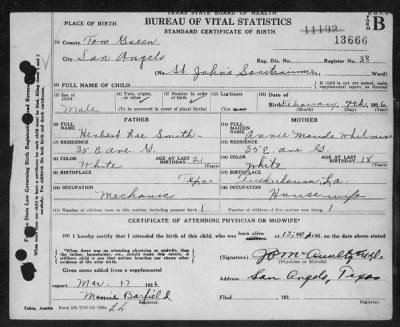 TEXAS STATE BOARD OF HEALTH
BUREAU OF VITAL STATISTICS
STANDARD CERTIFICATE OF BIRTH
PLACE OF BIRTH
11192
13666
FORM B
(1) County Tom Green
City San Angelo
Reg. Dis. No.
Register No. 38
No. St. John's
(2) FULL NAME OF CHILD
If child is not yet named, make supplemental report, as directed
(3) Sex Male
(4) Twin, triplet, or other?
(5) Number in order of birth
(6) Legitimate?
(7) Date of birth February 7th, 1926
FATHER
MOTHER
FULL NAME Herbert Lee Smith
FULL MAIDEN NAME Annie Maude
RESIDENCE 35 E ave G.
RESIDENCE 35 E ave G.
COLOR White
AGE AT LAST BIRTHDAY 21
COLOR White
AGE AT LAST BIRTHDAY 18
BIRTHPLACE Texas
BIRTHPLACE La.
OCCUPATION Mechanic
OCCUPATION Housewife
Number of children born to this mother, including present birth 1
Number of children of this mother now living 1
CERTIFICATE OF ATTENDING PHYSICIAN OR MIDWIFE*
I hereby certify that I attended the birth of this child, who was born alive at 12:40 P.M. on the date above stated.
*When there was no attending physician or midwife, then the father, householder, etc., should make this return.
(Signature)
(Physician or Midwife)
Given name added from a supplemental report
Mar. 17 1926
Address San Angelo, Texas
Filed , 192